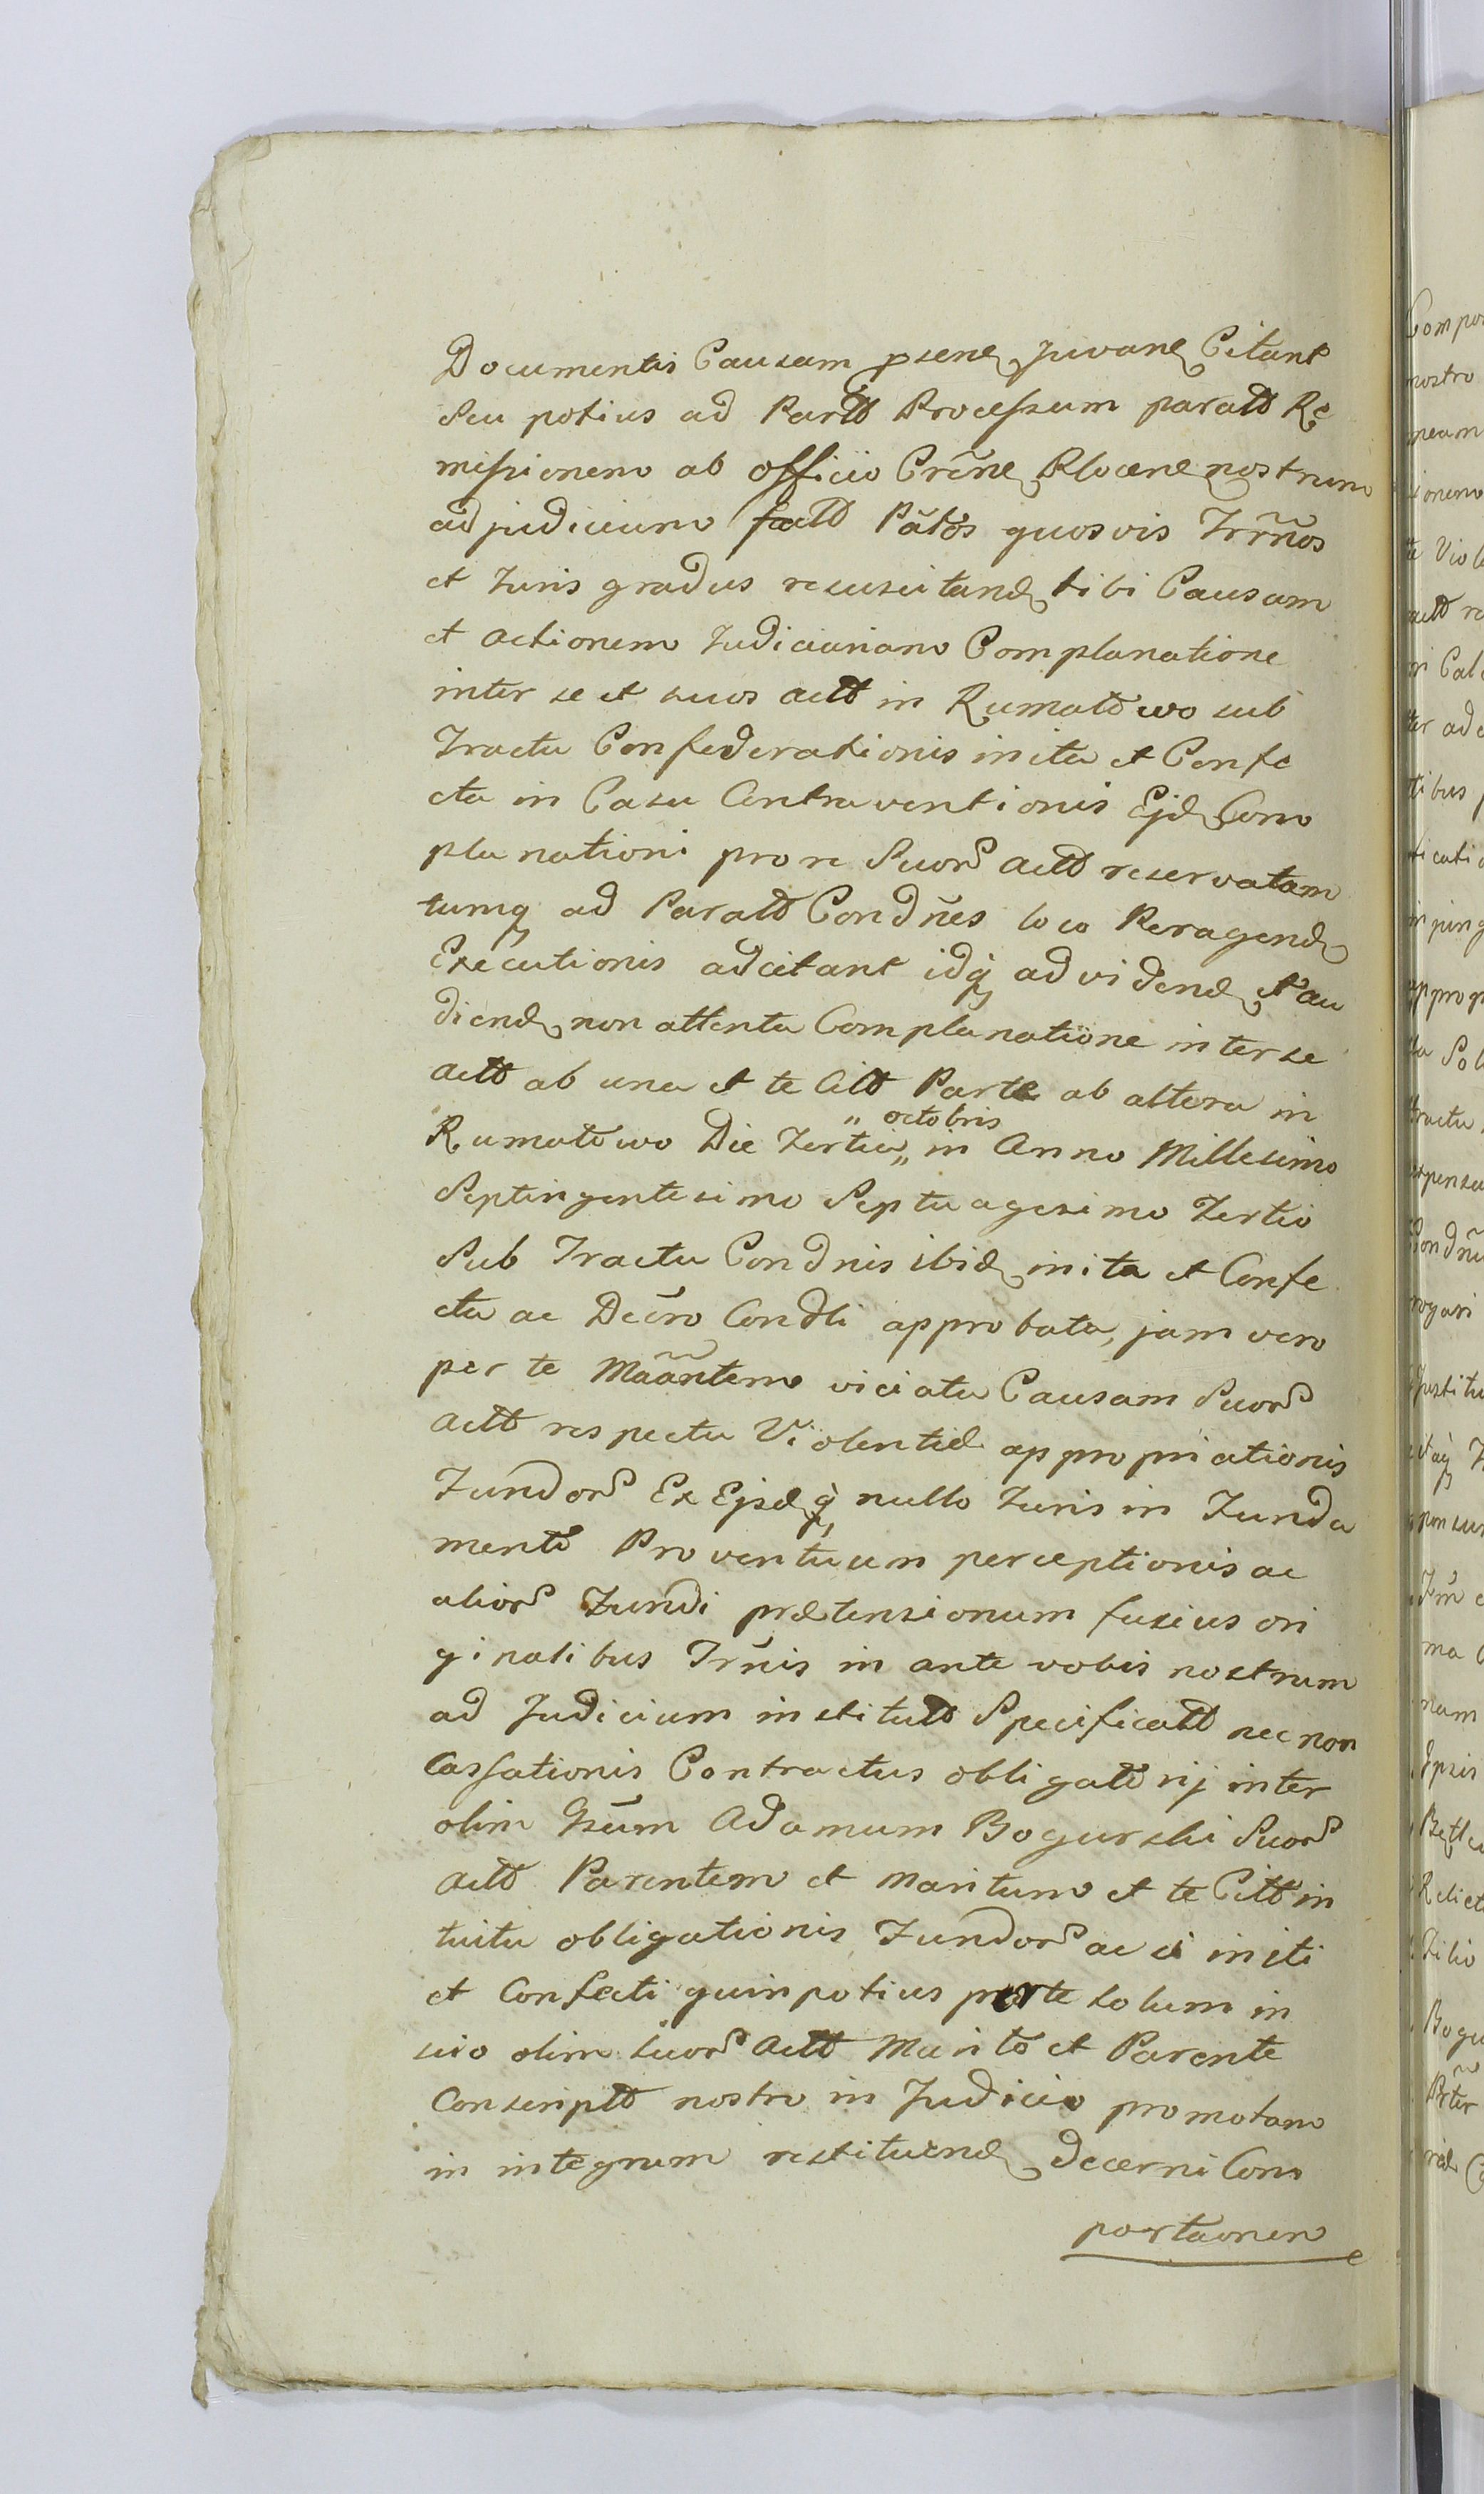 Documentis Causam psene Juvane Citant
Seu potius ad Partt Processum paratt Re
missionem ab officio Crẽne Plocene nostrum
ad judicium factt Pãtos quosvis Trr̃nos
et Juris gradus resuscitand tibi Causam
et actionem Judiciariam Complanatione
inter se et suos actt in Rumatowo sub
Tractu Confederationis inita et Confe
cta in Casu Contraventionis Ejd Com
planationi pro re Suor actt reservatam
tumq ad Paratt Condñes loco Peragend
Executionis adcitant idq ad vidend et au
diend non attenta Complanatione inter se
actt ab una et te Citt Parte ab altera in
Rumatowo Die Tertia „ octobris „ in Anno Millesimo
Septingentesimo Septuagesimo Tertio
Sub Tractu Condnis ibid inita et Confe
cta ac Decro Condli approbata, jam vero
per te Maãntem viciata Causam Suor
actt respectu Violentae appropriationis
Fundor Ex Ejsdq nullo Juris in Funda
mento Proventuum perceptionis ac
alior Fundi praetensionum fusius ori
ginalibus Trm̃is in ante vobis nostrum
ad Judicium institutt Specificatt nec non
Cassationis Contractus obligatorij inter
olim Gsum Adamum Bogurski Suor
actt Parentem et Maritum et te Citt in
tuitu obligationis Fundor ac si initi
et Confecti quinpotius per te solum in
scio olim suor actt Marito et Parente
Conscriptt nostro in Judicio promotam
in integrum restituend decerni Com
portaonem

Compos
nostro
meam
ionem
Viol
actt
ibus
nostitu
ma
nam
Relict
Filio
Bogu